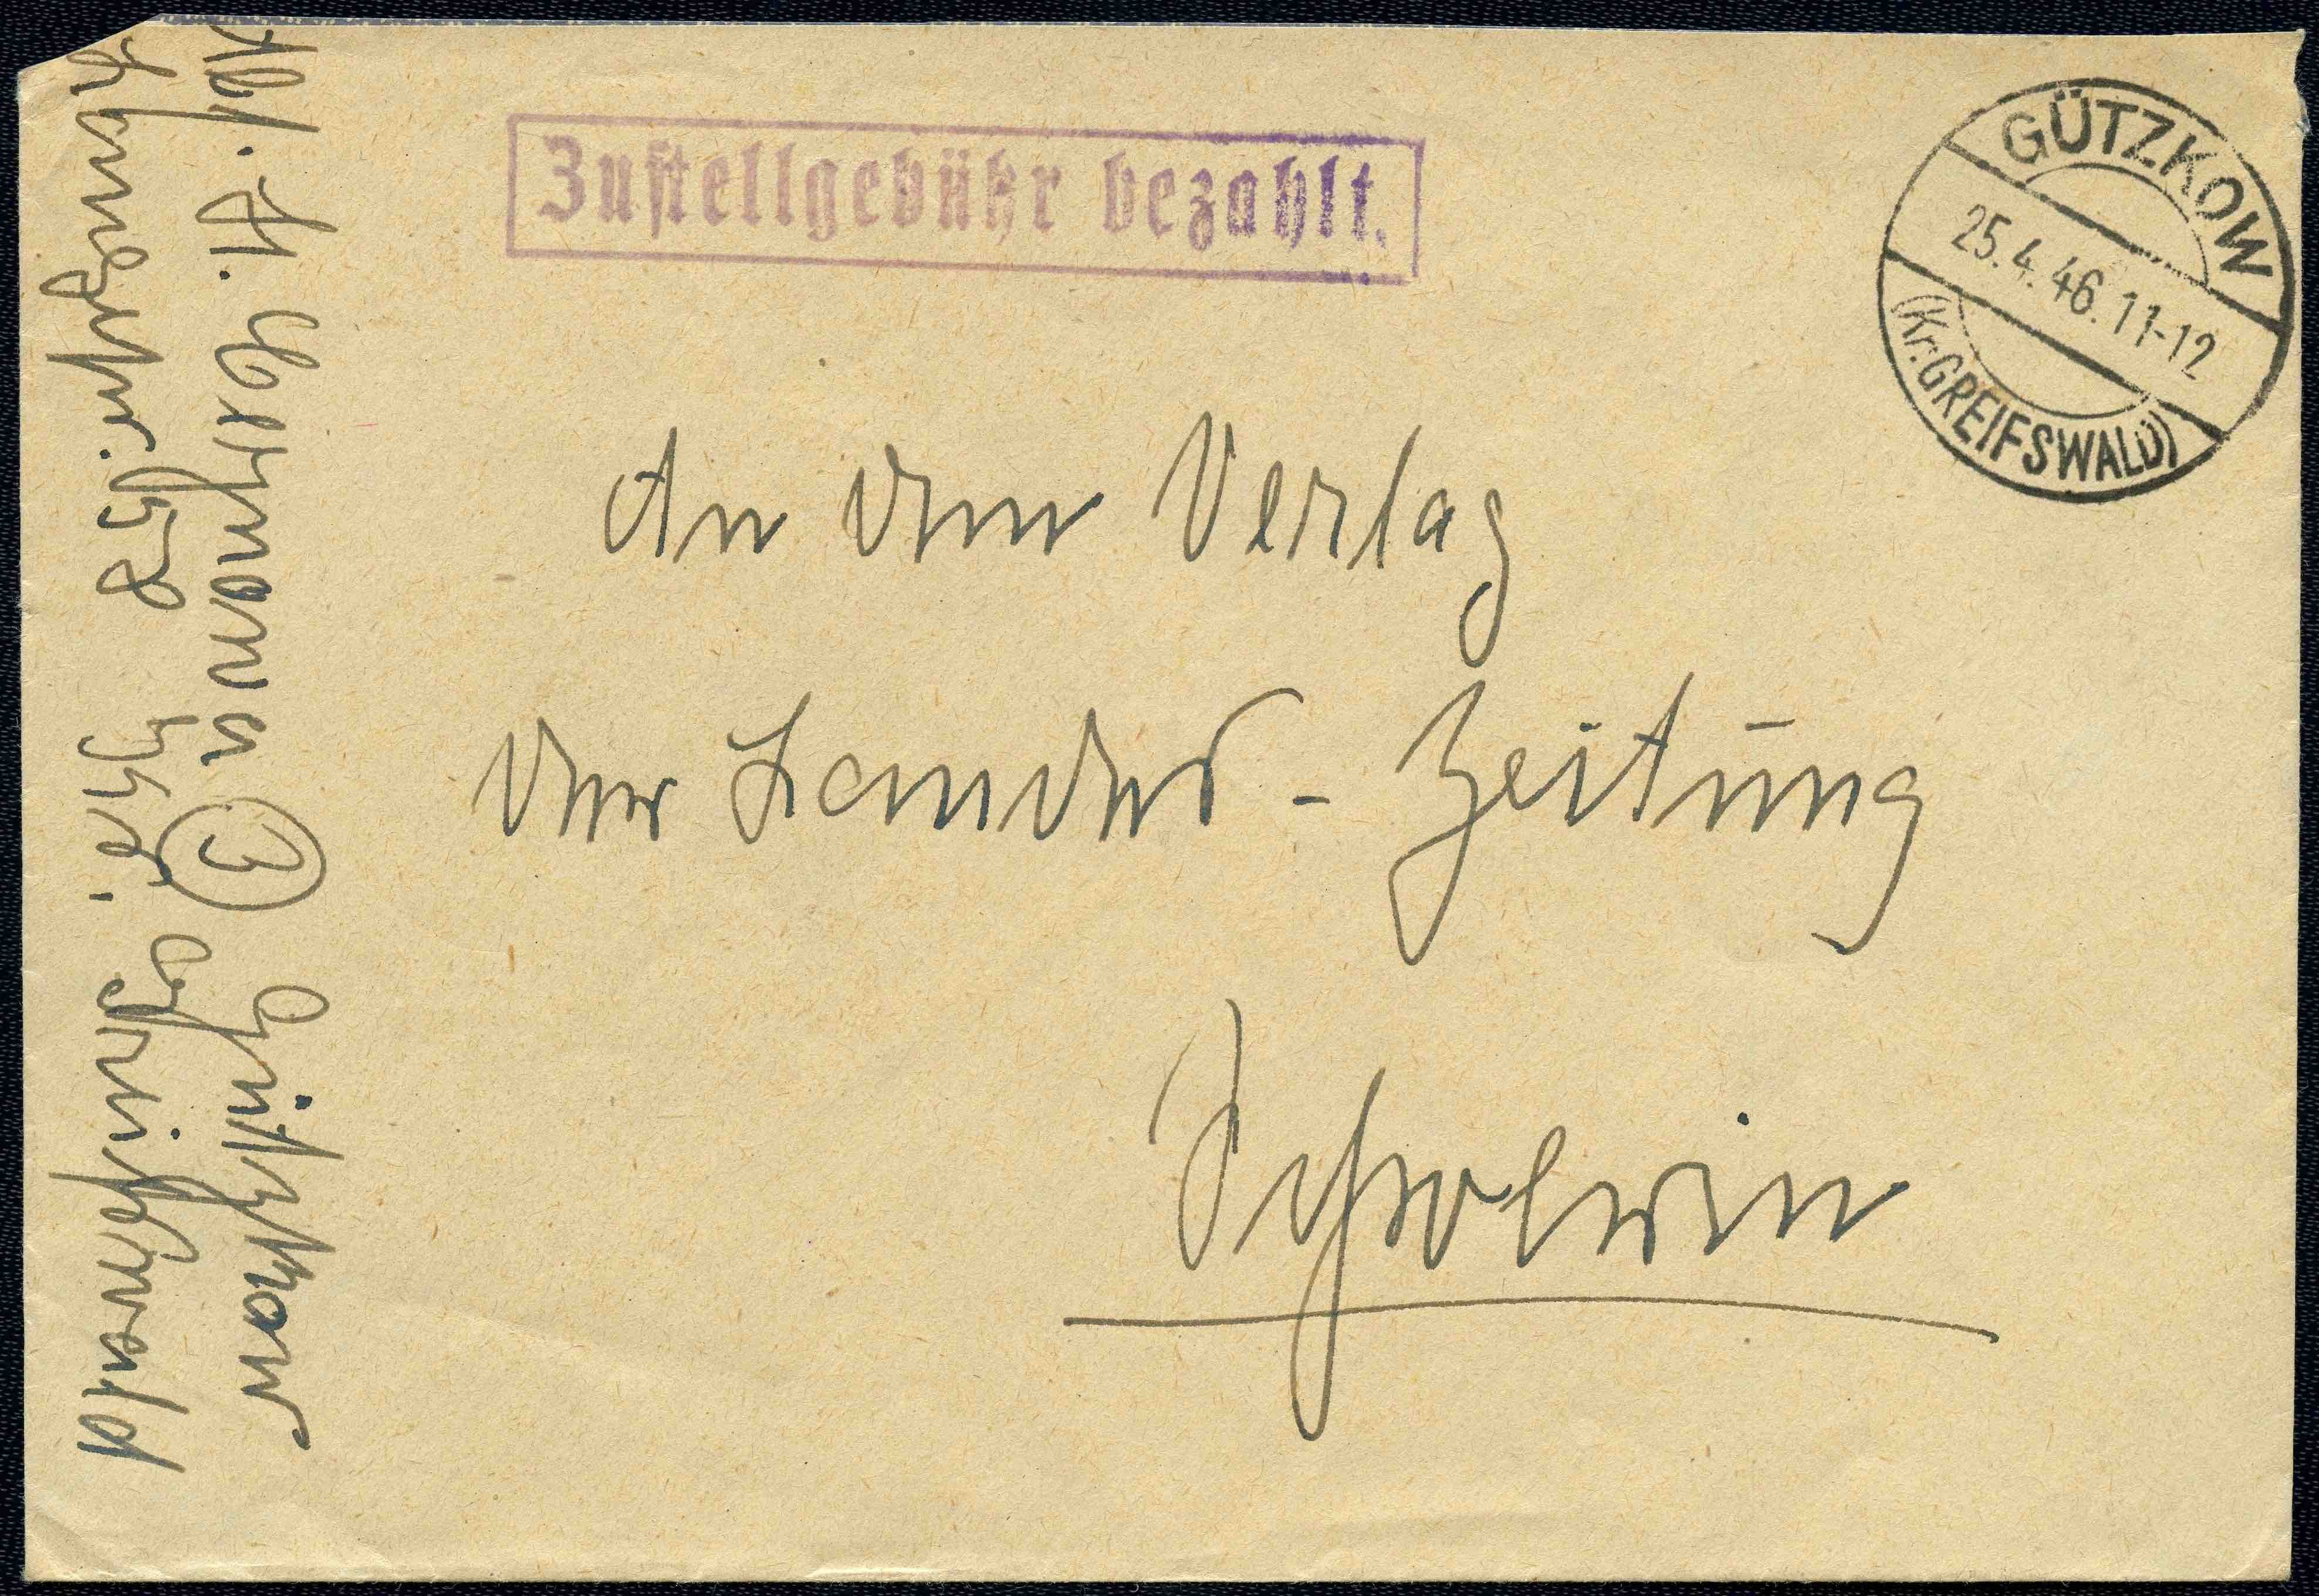 Zustellgebühr bezahlt.
GÜTZKOW
25.4.46.11-12
(Kr. GREIFSWALD)
An den Verlag
der Landes-Zeitung
Schwerin
Abs. H. Hermann ③ Gützkow
Kr. Greifswald